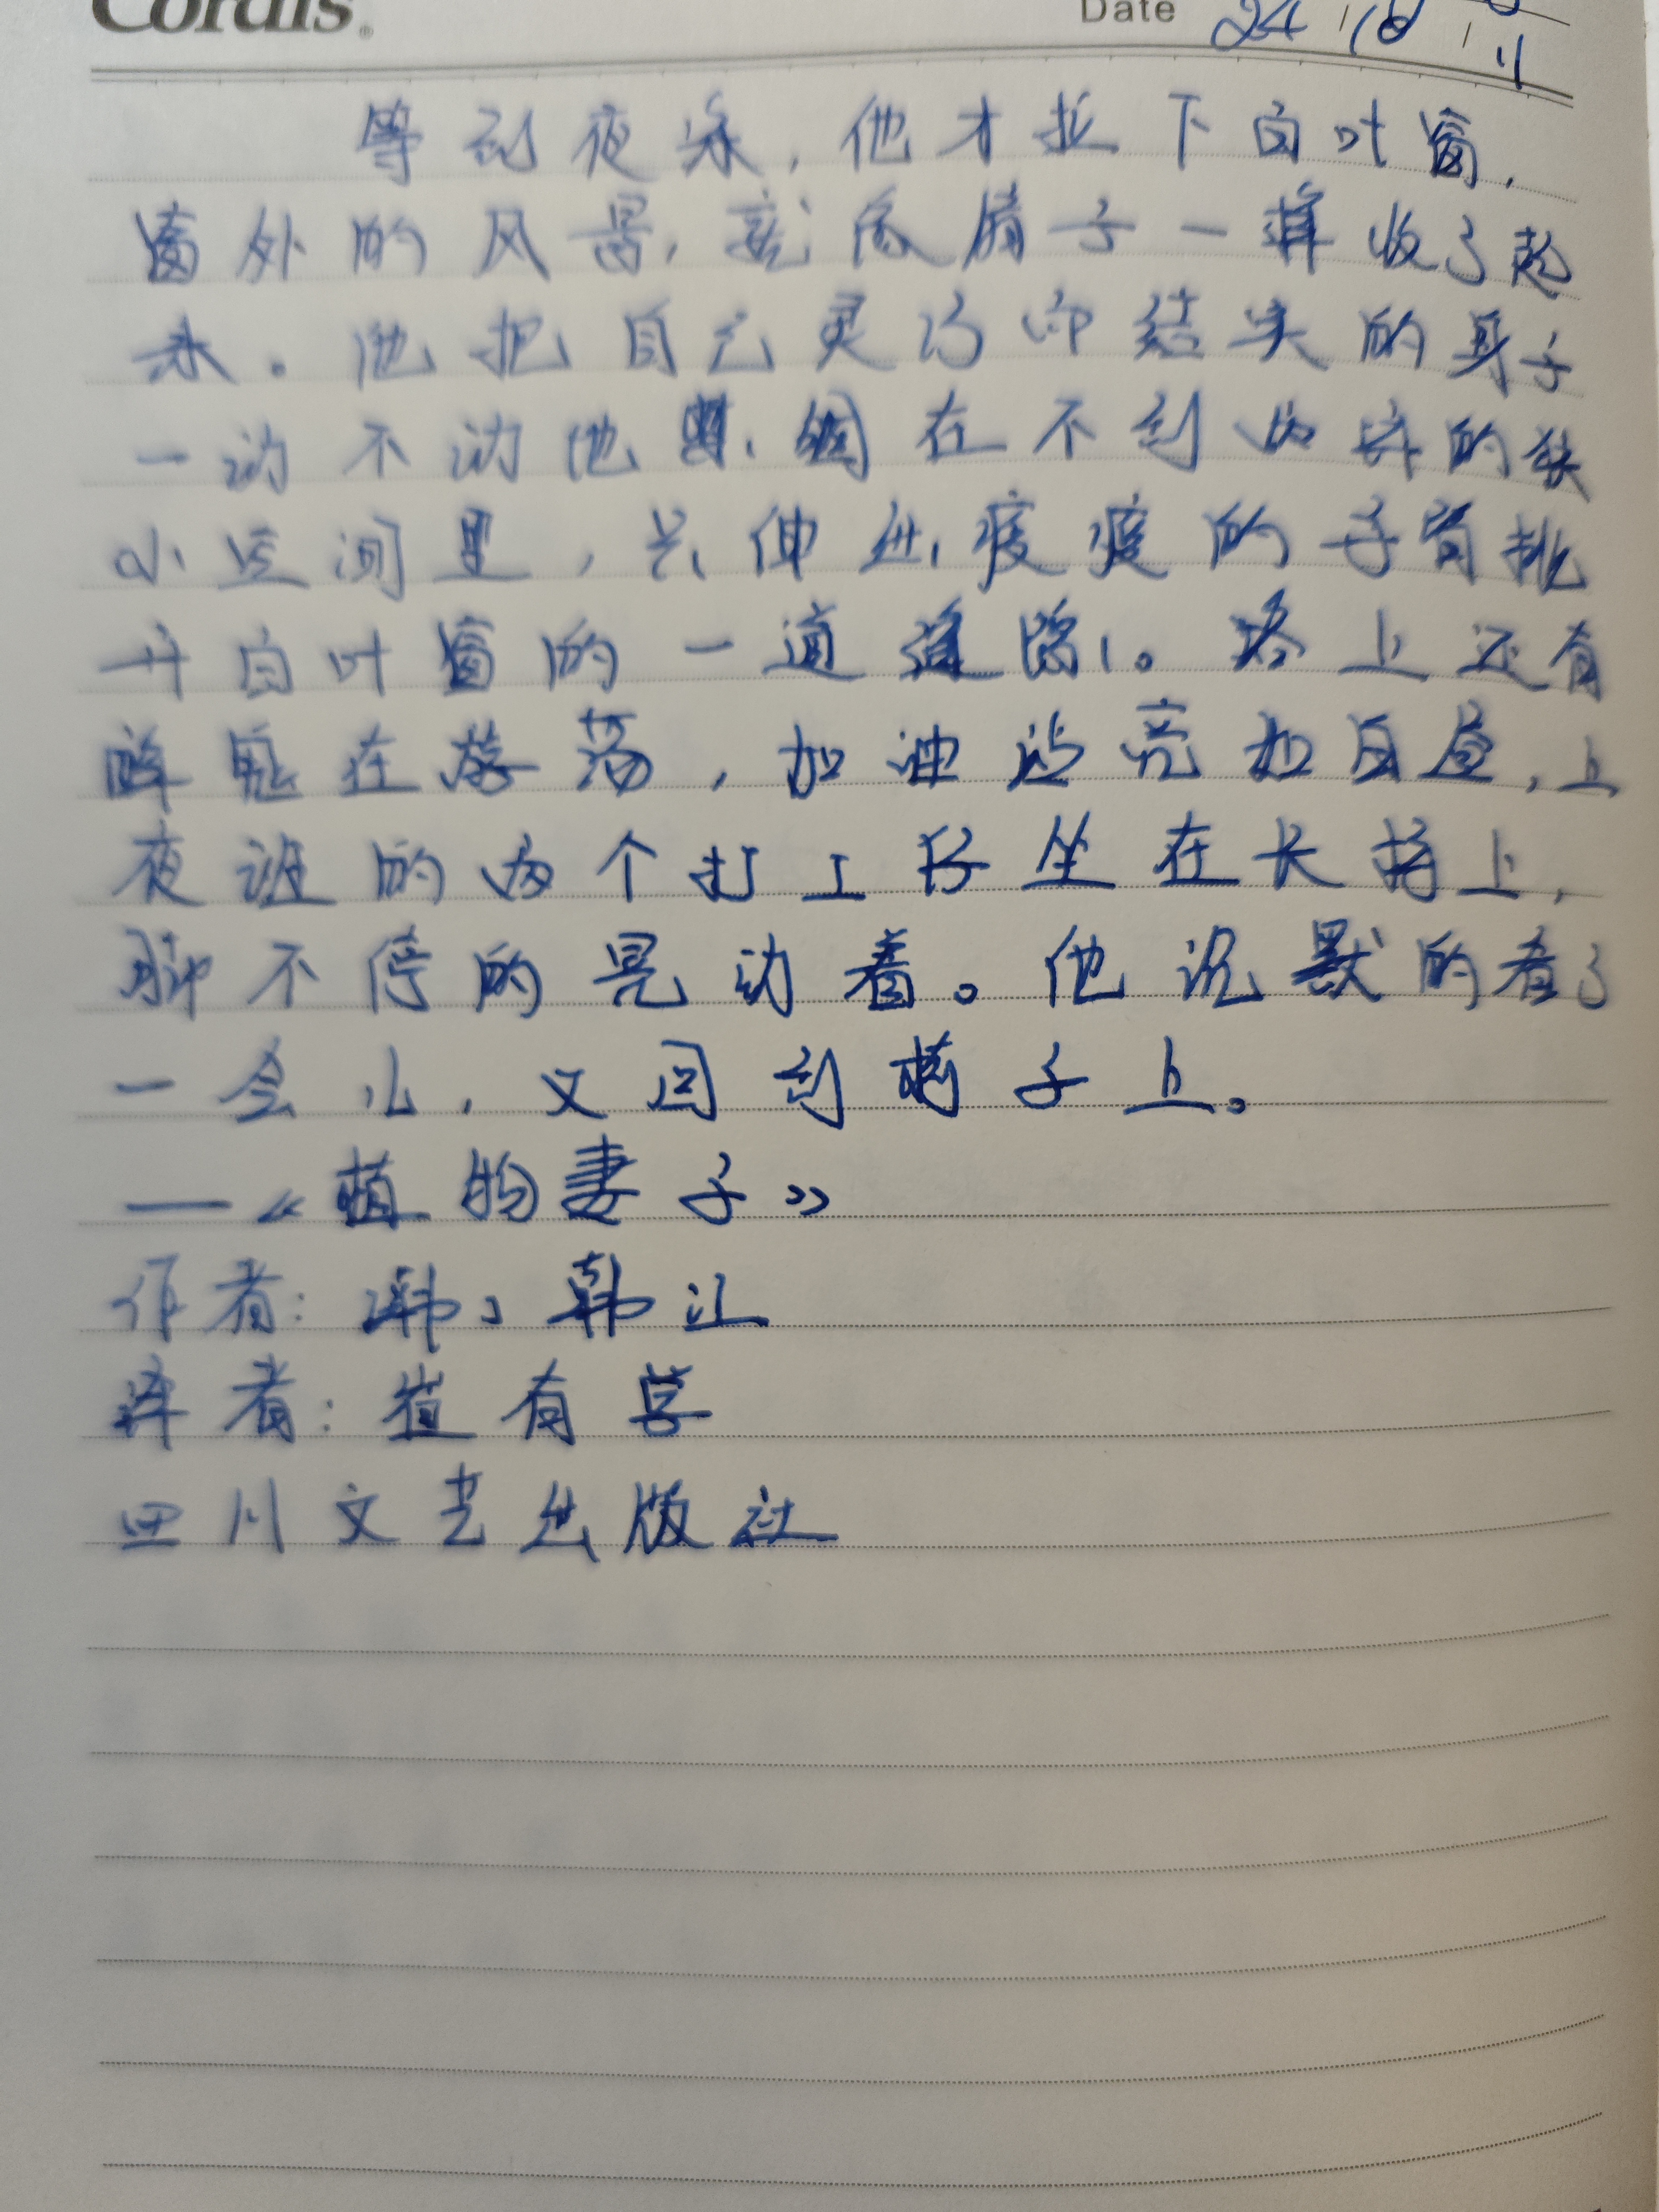 Cordis
Date 24/10/
11
等到夜深，他才拉下百叶窗，
窗外的风景，就像扇子一样收了起
来。他把自己灵巧而结实的身子
一动不动地 捆在不到两坪的狭
小空间里，只伸出疲疲的手臂挑
开百叶窗的一道缝隙。路上还有
醉鬼在游荡，加油站亮如白昼，上
夜班的两个打工仔坐在长椅上，
脚不停的晃动着。他沉默的看了
一会儿，又回到椅子上。
——《植物妻子》
作者：韩江
译者：崔有学
四川文艺出版社